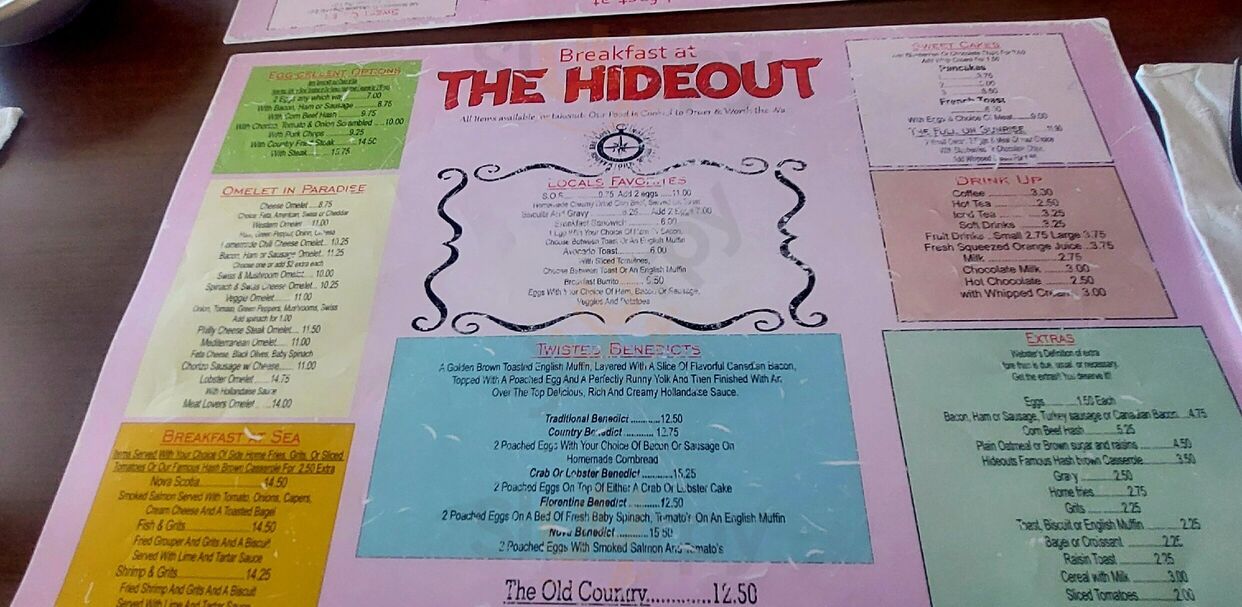 Breakfast at
THE HIDEOUT
EGG-CELLENT OPTIONS
2 Eggs any which way.....7.00
With Bacon, Ham or Sausage.....8.75
With Corn Beef Hash.....9.75
With Chorizo, Tomato & Onion Scrambled.....10.00
With Pork Chops.....9.25
With Country Fried Steak.....14.50
With Steak.....15.75
OMELET IN PARADISE
Cheese Omelet....8.75
Choice: Feta, American, Swiss or Cheddar
Western Omelet.....11.00
Ham, Green Pepper, Onion, Cheese
Homemade Chili Cheese Omelet...10.25
Bacon, Ham or Sausage Omelet...11.25
Choose one or add $2 extra each
Swiss & Mushroom Omelet.....10.00
Spinach & Swiss Cheese Omelet...10.25
Veggie Omelet........11.00
Onion, Tomato, Green Peppers, Mushrooms, Swiss
Add spinach for 1.00
Philly Cheese Steak Omelet....11.50
Mediterranean Omelet.... 11.00
Feta Cheese, Black Olives, Baby Spinach
Chorizo Sausage w/ Cheese......11.00
Lobster Omelet......14.75
With Hollandaise Sauce
Meat Lovers Omelet......14.00
BREAKFAST AT SEA
Items Served With Your Choice Of Side Home Fries, Grits, Or Sliced
Tomatoes Or Our Famous Hash Brown Casserole For 2.50 Extra
Nova Scotia..................14.50
Smoked Salmon Served With Tomato, Onions, Capers,
Cream Cheese And A Toasted Bagel
Fish & Grits......................14.50
Fried Grouper And Grits And A Biscuit
Served With Lime And Tartar Sauce
Shrimp & Grits.................14.25
Fried Shrimp And Grits And A Biscuit
Served With Lime And Tartar Sauce
LOCALS FAVORITES
S.O.S. Add 2 eggs .....11.00
Homemade Creamy Dried Chip Beef, Served On Toast
Biscuits And Gravy Add 2 Eggs 7.00
Breakfast Sandwich............6.00
1 Egg With Your Choice Of Ham Or Bacon,
Choose Between Toast Or An English Muffin
Avocado Toast..............6.00
With Sliced Tomatoes,
Choose Between Toast Or An English Muffin
Breakfast Burrito.........9.50
Eggs With Your Choice Of Ham, Bacon Or Sausage,
Veggies And Potatoes
TWISTED BENEDICTS
A Golden Brown Toasted English Muffin, Layered With A Slice Of Flavorful Canadian Bacon,
Topped With A Poached Egg And A Perfectly Runny Yolk And Then Finished With An
Over The Top Delicious, Rich And Creamy Hollandaise Sauce.
Traditional Benedict ............12.50
Country Benedict ............12.75
2 Poached Eggs With Your Choice Of Bacon Or Sausage On
Homemade Cornbread
Crab Or Lobster Benedict .....15.25
2 Poached Eggs On Top Of Either A Crab Or Lobster Cake
Florentine Benedict ...........12.50
2 Poached Eggs On A Bed Of Fresh Baby Spinach, Tomato's On An English Muffin
Nova Benedict............15.50
2 Poached Eggs With Smoked Salmon And Tomato's
The Old Country............12.50
SWEET CAKES
Pancakes
French Toast
With Eggs & Choice Of Meat.......9.00
THE FULL ON SUNRISE
DRINK UP
Coffee ..............3.30
Hot Tea ..............2.50
Iced Tea ............3.25
Soft Drinks ..........3.25
Fruit Drinks ..Small 2.75 Large 3.75
Fresh Squeezed Orange Juice...3.75
Milk ..............2.75
Chocolate Milk ......3.00
Hot Chocolate .......2.50
with Whipped Cream...3.00
EXTRAS
Webster's Definition of extra
Get the extras!! You deserve it!!
Eggs............1.50 Each
Bacon, Ham or Sausage, Turkey sausage or Canadian Bacon...4.75
Corn Beef Hash..........5.25
Plain Oatmeal or Brown sugar and raisins............4.50
Hideouts Famous Hash brown Casserole........3.50
Gravy............2.50
Home fries...........2.75
Grits............2.25
Toast, Biscuit or English Muffin..........2.25
Bagel or Croissant..........2.25
Raisin Toast............2.25
Cereal with Milk............3.00
Sliced Tomatoes..........2.00